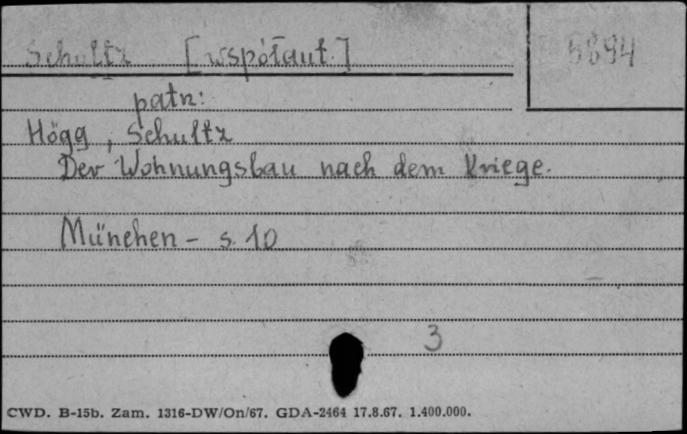 Schultz [współaut.]
5894
patrz:
Högg, Schultz
Der Wohnungsbau nach dem Kriege.
München - s. 10
3
CWD. B-15b. Zam. 1316-DW/On/67. GDA-2464 17.8.67. 1.400.000.